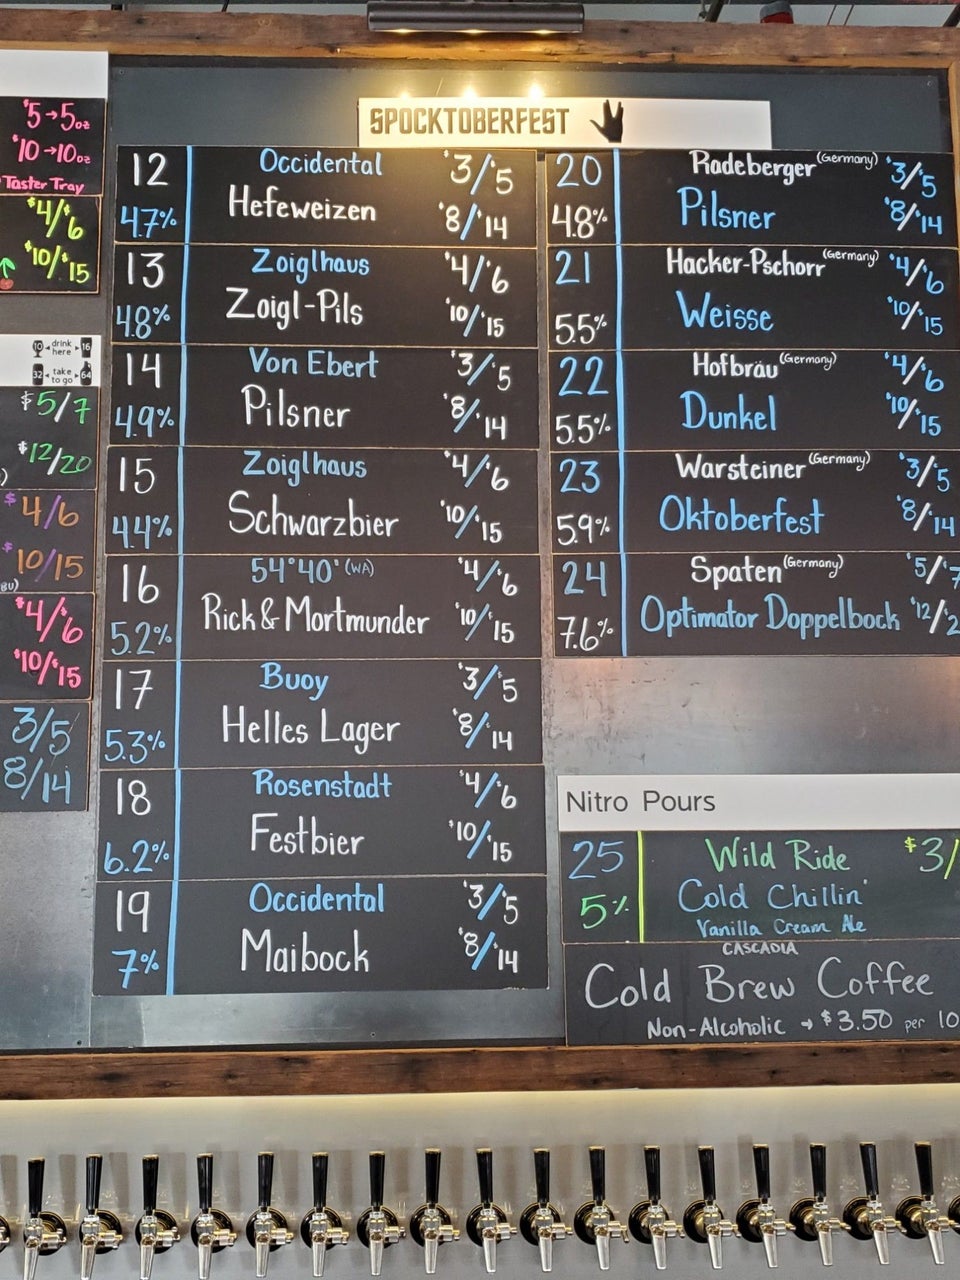 $5→5oz
$10→10oz
Taster Tray
$4/$6
$10/$15
10 drink here 16
32 take to go 64
$5/7
$12/20
$4/6
$10/15
$4/$6
$10/$15
3/5
8/14
SPOCKTOBERFEST
12 Occidental $3/$5
4.7% Hefeweizen $8/$14
13 Zoiglhaus $4/$6
4.8% Zoigl-Pils $10/$15
14 Von Ebert $3/$5
4.9% Pilsner $8/$14
15 Zoiglhaus $4/$6
4.4% Schwarzbier $10/$15
16 54°40' (WA) $4/$6
5.2% Rick & Mortmunder $10/$15
17 Buoy $3/$5
5.3% Helles Lager $8/$14
18 Rosenstadt $4/$6
6.2% Festbier $10/$15
19 Occidental $3/$5
7% Maibock $8/$14
20 Radeberger (Germany) $3/$5
4.8% Pilsner $8/$14
21 Hacker-Pschorr (Germany) $4/$6
5.5% Weisse $10/$15
22 Hofbräu (Germany) $4/$6
5.5% Dunkel $10/$15
23 Warsteiner (Germany) $3/$5
5.9% Oktoberfest $8/$14
24 Spaten (Germany) $5/$7
7.6% Optimator Doppelbock $12/$2
Nitro Pours
25 Wild Ride $3/
5% Cold Chillin'
Vanilla Cream Ale
CASCADIA
Cold Brew Coffee
Non-Alcoholic → $3.50 per 10